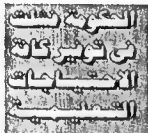 الحكومة نسات
فى توفير كات
الاحتياجات
التموينية